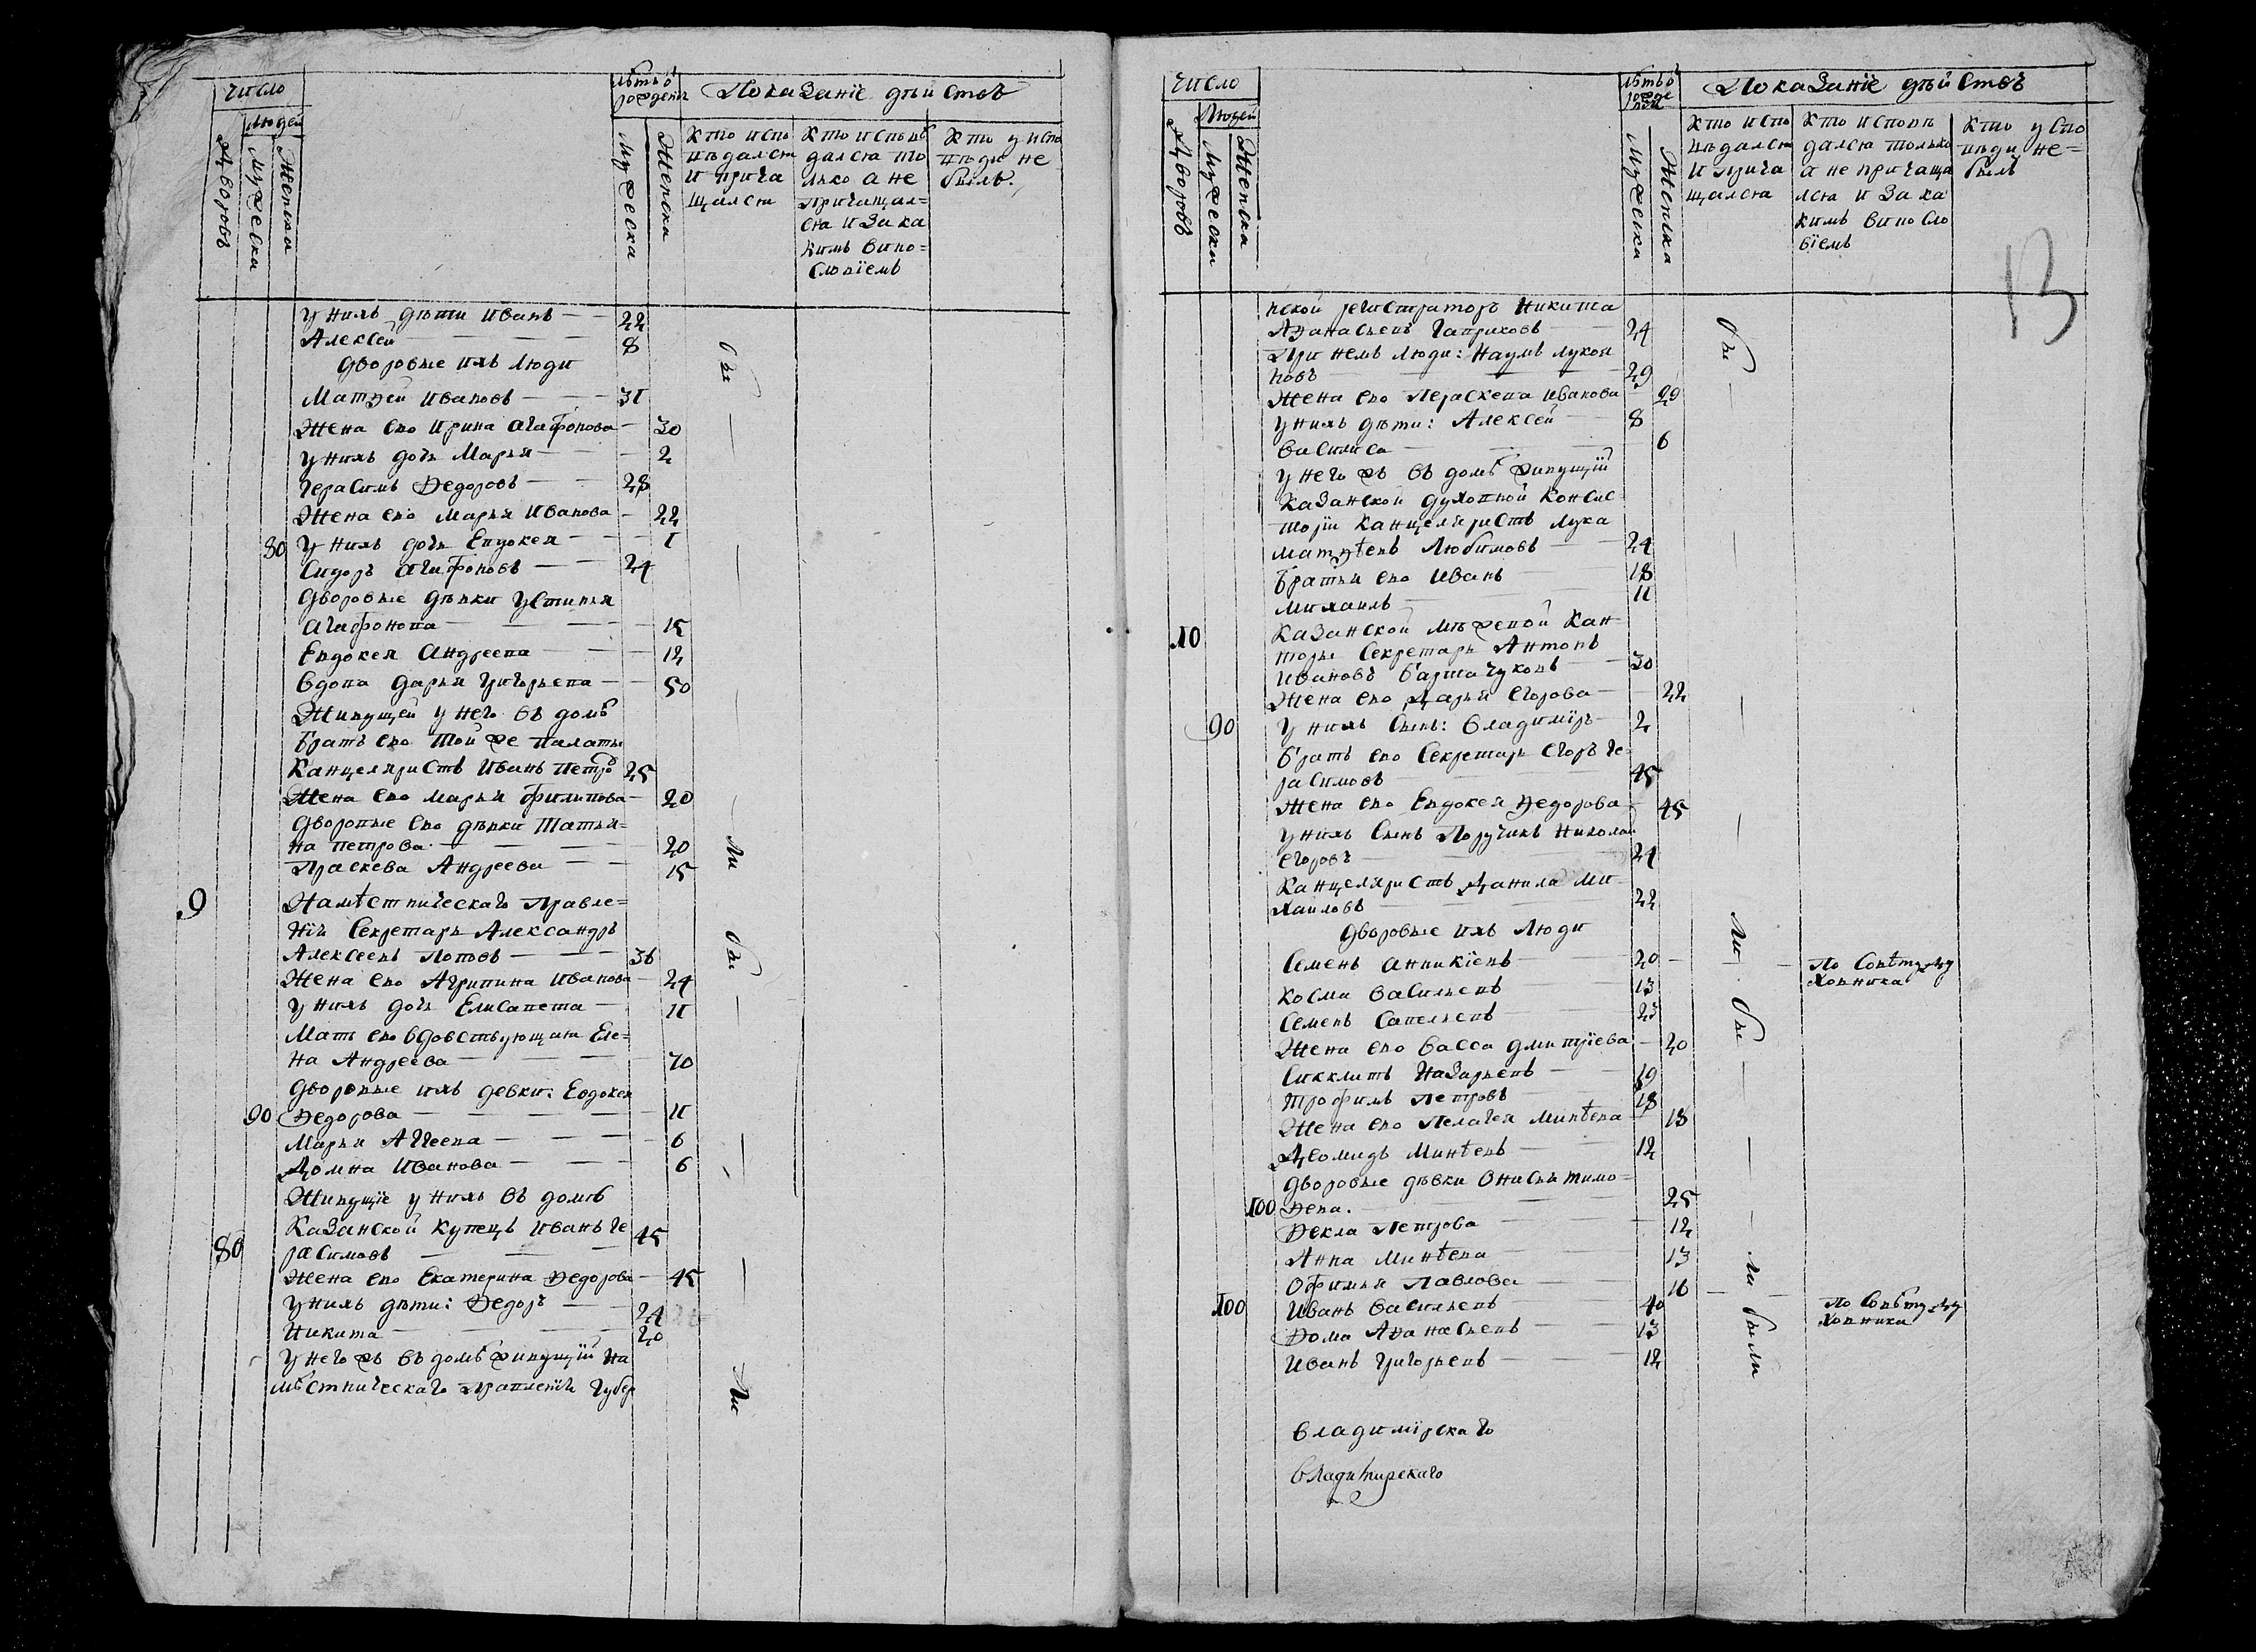 число
людей
Дворовъ
Мужеска
Женска
лѣтъ ѿ рожденія
Мужеска
Женска
Показаніе дѣйствъ
Кто испо
вѣдался
и прича
щался
Кто исповѣ
дался то
лько а не
причащал=
ся и за ка
кимъ вино=
словіемъ
Кто у испо
вѣди не
былъ.
у нихъ дѣти Иванъ — 22
Алексей — 8
дворовые ихъ люди
Матѳей Ивановъ — 31
Жена ево Ирина Агафонова — 30
у нихъ дочь Марья — 2
Герасимъ Ѳедоровъ — 28
Жена ево Марья Иванова — 22
80 у нихъ дочь Евдокея — 1
Сидоръ Агафоновъ — 24
дворовые дѣвки Устинья
Агафонова — 15
Евдокея Андреева — 12
вдова Дарья Григорьева — 50
Живущей у него въ домѣ
братъ ево той же палаты
Канцеляристъ Иванъ Петровъ 25
Жена ево Марья Филипова — 20
дворовые ево дѣвки Татья=
на Петрова — 20
Праскева Андреева — 15
9 Намѣстническаго Правле=
нія Секретарь Александръ
Алексеевъ Поповъ — 36
Жена ево Агрипина Иванова — 24
у нихъ дочь Елисавета — 11
Мать ево вдовствующая Еле=
на Андреева — 70
дворовые ихъ девки: Евдокея
90 Ѳедорова — 11
Марья Агеева — 6
Домна Иванова — 6
Живущіе у нихъ въ домѣ
Казанской купецъ Иванъ Ге
80 расимовъ — 45
Жена ево Екатерина Ѳедорова — 45
у нихъ дѣти: Ѳедоръ — 24
Никита — 20
у него жъ въ домѣ живущій На
мѣстническаго правленія Губер
бы
ли
бы
ли
13
число
людей
Дворовъ
Мужеска
Женска
лѣтъ ѿ рожде нія
Мужеска
Женска
Показаніе дѣйствъ
Кто испо
вѣдался
и прича
щался
Кто исповѣ
дался только
а не прича ща
лся и за ка
кимъ виносло
віемъ
Кто у спо
вѣди не=
былъ
нской регистраторъ Никита
Аѳанасьевъ Гавриловъ — 24
При немъ люди: Наумъ Лукоя
новъ — 29
Жена ево Пераскева Иванова 29
у нихъ дѣти: Алексей — 8
Василиса — 6
у него жъ въ домѣ живущій
Казанской духовной консис
торіи канцеляристъ Лука
Матѳѣевъ Любимовъ — 24
братья ево Иванъ — 18
Михаилъ — 11
10 Казанской межевой кан=
торы Секретарь Антонъ
Ивановъ — 30
Жена ево Дарья Егорова — 22
90 у нихъ сынъ: Владимiръ — 2
братъ ево Секретарь Егоръ Ге=
расимовъ — 45
Жена ево Евдокея Ѳедорова — 45
у нихъ сынъ Поручикъ Николай
Егоровъ — 24
Канцеляристъ Данила Ми
хаиловъ — 22
дворовые ихъ люди
Семенъ Аникіевъ — 20 — по Совѣту ду
ховника
Косма Васильевъ — 13
Семенъ Савельевъ — 23
Жена ево Васса Дмитріева — 20
Сикклитъ Назарьевъ — 19
Трофимъ Петровъ — 18
Жена ево Пелагея Минѣева 18
Деомидъ Минѣевъ — 12
дворовые дѣвки Онисья Тимо=
100 ѳева. — 25
Ѳекла Петрова — 12
Анна Минѣева — 13
Офимья Павлова — 16
100 Иванъ Васильевъ — 40 — по Совѣту ду
ховника
Ѳома Аѳанасьевъ — 13
Иванъ Григорьевъ — 12
бы
ли
бы
ли
были
Владимірскаго
Владимирскаго